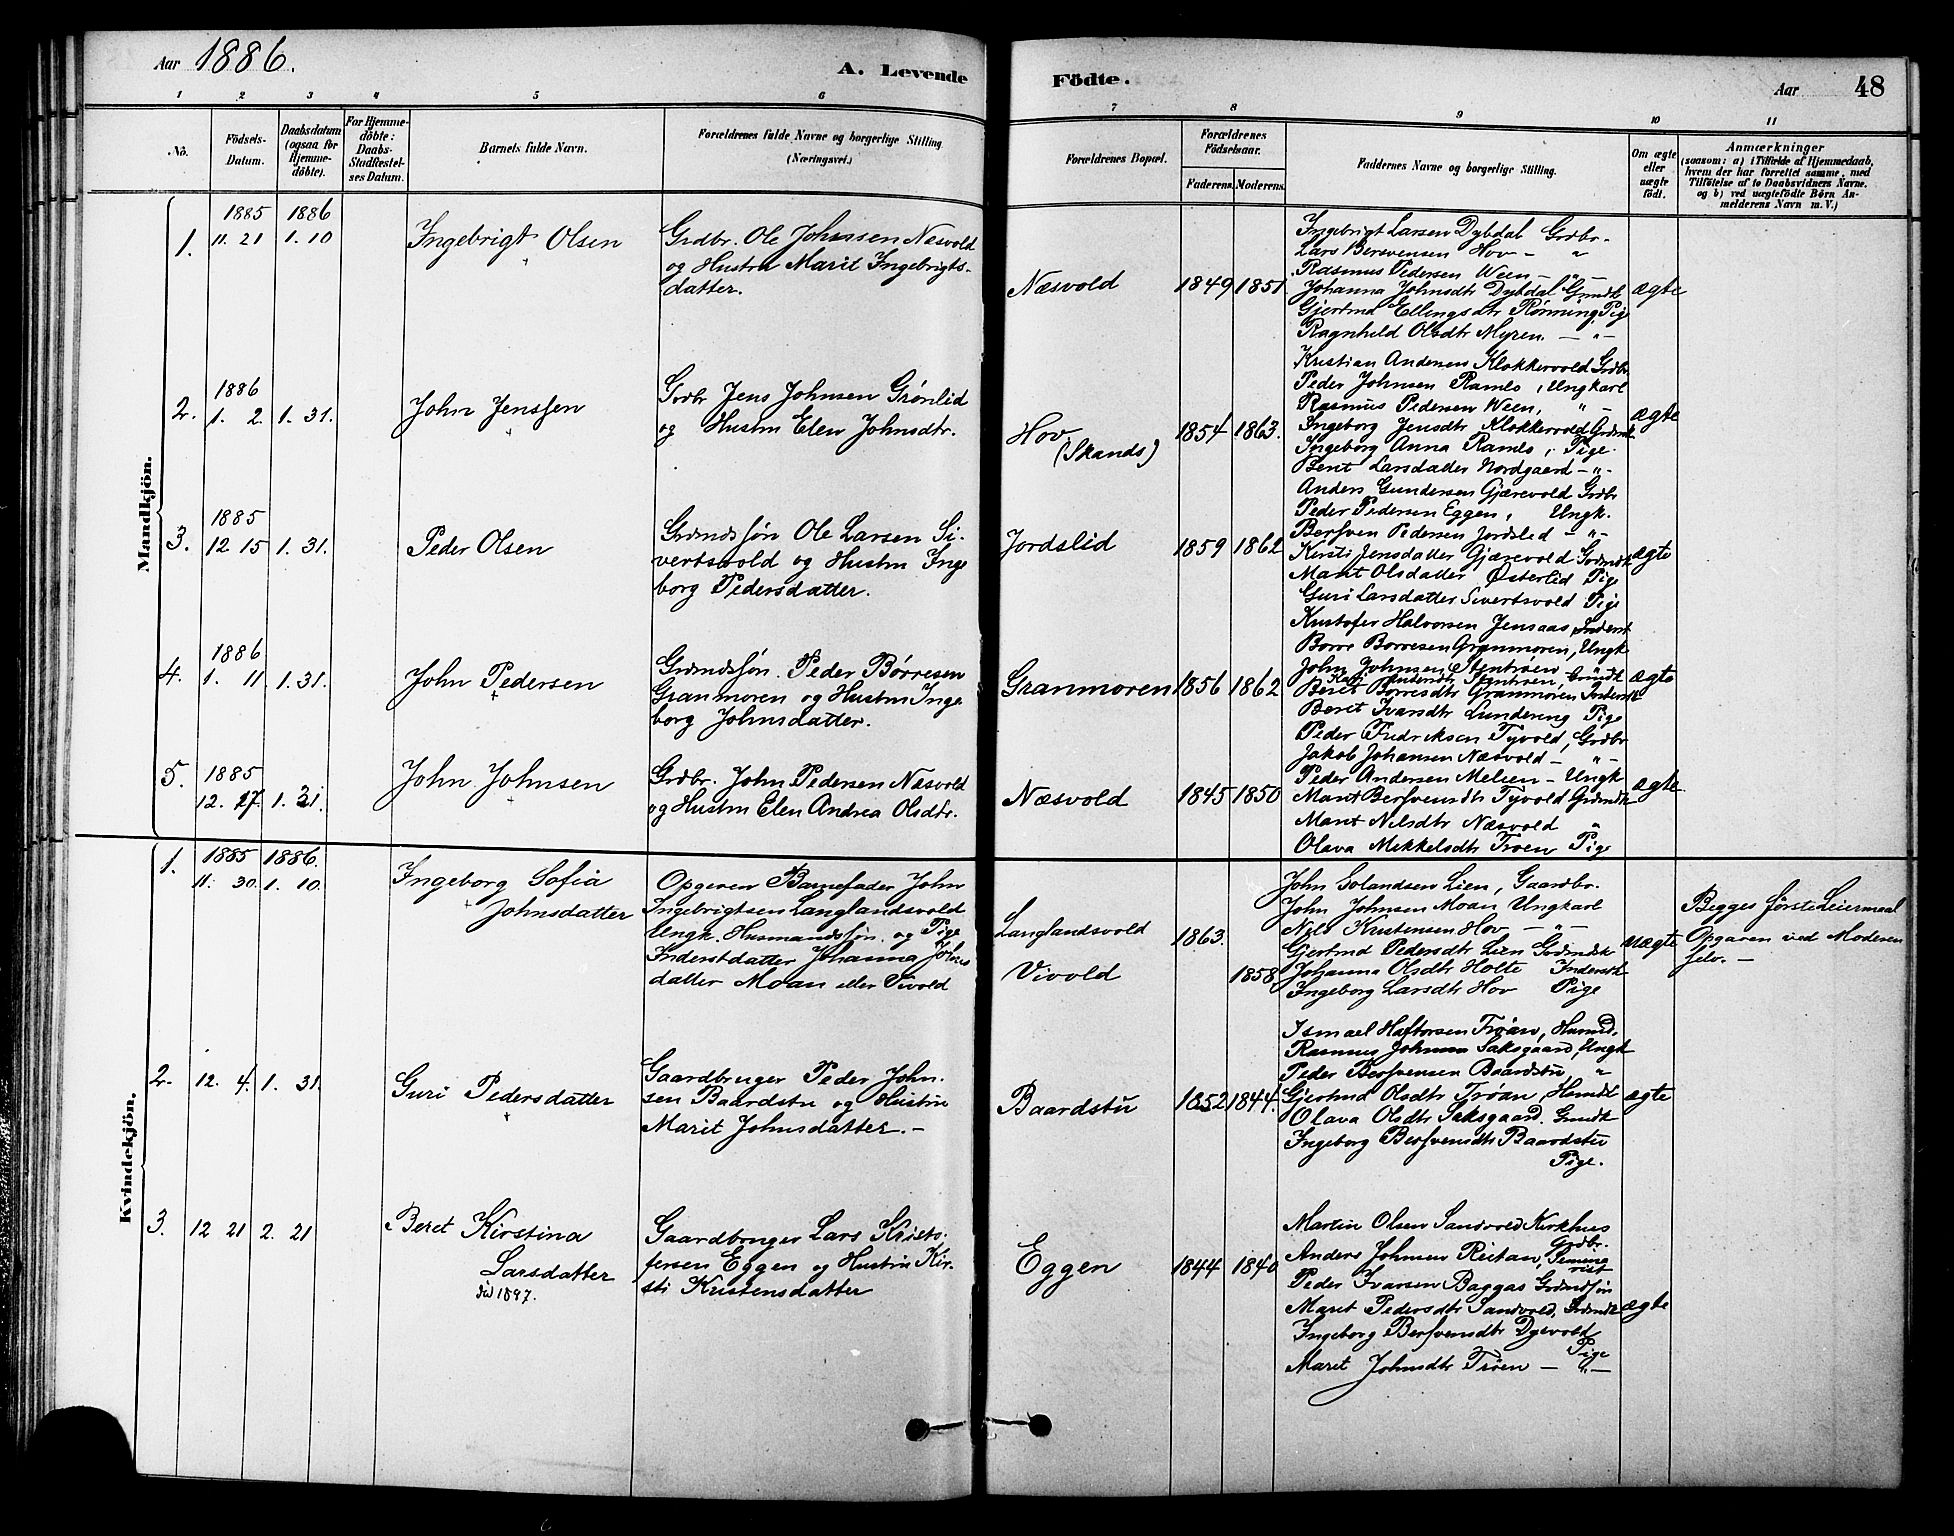 Aar 1886.
A. Levende Födte.
Aar 48
1 2 3 4 5 6 7 8 9 10 11
No.
Födsels-
Datum.
Daabsdatum
(ogsaa for
Hjemme-
döbte).
For Hjemme-
döbte:
Daabs-
Stadfæstel-
ses Datum.
Barnets fulde Navn.
Forældrenes fulde Navne og borgerlige Stilling
(Næringsvei.)
Forældrenes Bopæl.
Forældrenes
Födselsaar.
Faderens. Moderens.
Faddernes Navne og borgerlige Stilling.
Om ægte
eller
uægte
födt.
Anmærkninger
(saasom: a) i Tilfælde af Hjemmedaab,
hvem der har forrettet samme, med
Tilföielse af to Daabsvidners Navne,
og b) ved uægtefödte Börn An-
melderens Navn m. V.)
Mandkjön.
1.
1885 1886
11. 21 1. 10
Ingebrigt Olsen
Grdbr. Ole Johnsen Næsvold
og Hustru Marit Ingebrigts-
datter.
Næsvold
1849 1851.
Ingebrigt Larsen Dybdal Grdbr.
Lars Bersvensen Hov - "
Rasmus Pedersen Ween - " -
Johanna Johnsdtr Dybdal Grmdk
Gjertrud Ellingsdtr Rönning, Pige
Ragnhild Olsdtr Myren. - " -
ægte
2.
1886
1. 2. 1. 31.
John Jenssen
Grdbr Jens Johnsen Grönlid
og Hustru Elen Johnsdtr.
Hov
(Skands)
1854 1863.
Kristian Andersen Klokkervold Grdbr
Peder Johnsen Ramlo, Ungkarl
Rasmus Pedersen Ween, " -
Ingeborg Jensdtr Klokkervold Grdmk
Ingeborg Anna Ramlo, Pige.
Berit Larsdatter Nordgaard - " -
ægte
3.
1885
12 15 1. 31.
Peder Olsen
Grdmdssön Ole Larsen Si-
vertsvold og Hustru Inge
borg Pedersdatter.
Jordslid
1859 1862
Anders Gundersen Gjærevold Grdbr
Peder Pedersen Eggen, Ungk.
Bersven Pedersen Jordslid - " -
Kirsti Jensdatter Gjærevold Grdmdk
Marit Olsdatter Østerlid Pige
Guri Larsdatter Sivertsvold Pige
ægte
4.
1886
1. 11 1. 31.
John Pedersen
Grdmdssön. Peder Börresen
Granmoren og Hustru Inge
borg Johnsdatter.
Granmoren
1856 1862
Kristofer Halvorsen Jensaas, Inderst
Borre Borresen Granmoren, Ungk
John Johnsen Stentröen "
Beret Borresdtr Granmoren Inderstk
Beret Ivarsdtr Lundereng Pige
ægte
5.
1885
12. 27. 1. 31.
John Johnsen
Grdbr. John Pedersen Næsvold
og Hustru Elen Andrea Olsdtr.
Næsvold
1845 1850
Peder Fredriksen Tyvold, Grdbr
Jakob Johansen Næsvold - " -
Peder Andersen Melien - Ungk
Marit Bersvensdtr Tyvold Grdmdk
Marit Nilsdtr Næsvold "
Olava Mikkelsdtr Troen Pige
ægte
Kvindekjön.
1.
1885 1886.
11. 30. 1. 10.
Ingeborg Sofia
Johnsdatter
Opgiven Barnefader John
Ingebrigtsen Langlandsvold
Ungk. Husmandssön. og Pige
Inderstdatter Johanna Johns
datter Moan eller Vivold
Langlandsvold
Vivold
1863.
1858
John Estensen Lien, Gaardbr.
John Johnsen Moan Ungkarl
Nils Kristensen Hov - " -
Gjertrud Pedersdtr Lien Grdmdk
Johanna Olsdtr Holte Inderstk
Ingeborg Larsdtr Hov Pige
uægte
Begges förste Leiermaal
Opgaven ved Moderen
selv. -
2.
12. 4. 1. 31.
Guri Pedersdatter
Gaardbruger Peder John-
sen Baardstu og Hustru
Marit Johnsdatter. -
Baardstu
1852 1844.
Ismael Haftorsen Tröan, Husmd.
Rasmus Johnsen Saksgaard, Ungk
Peder Bersvensen Baardstu, "
Gjertrud Olsdtr Tröan, Husmdk
Olava Olsdtr Saksgaard. Grmdk
Ingeborg Bersvensdtr Baardstu
Pige.
ægte
3.
12 21 2. 21
Beret Kirstina
Larsdatter
död 1897.
Gaardbruger Lars Kristo-
fersen Eggen og Hustru Kir-
sti Kristensdatter
Eggen
1844 1840
Martin Olsen Sandvold Kirkhus
Grdbr.
Anders Johnsen Reitan, Semina
rist
Peder Ivarsen Baggas Grdmdssön
Marit Pedersdtr Sandvold, Grdmdk
Ingeborg Bersvensdtr Dysvold
Pige
Marit Johnsdtr Tröen - " -
ægte